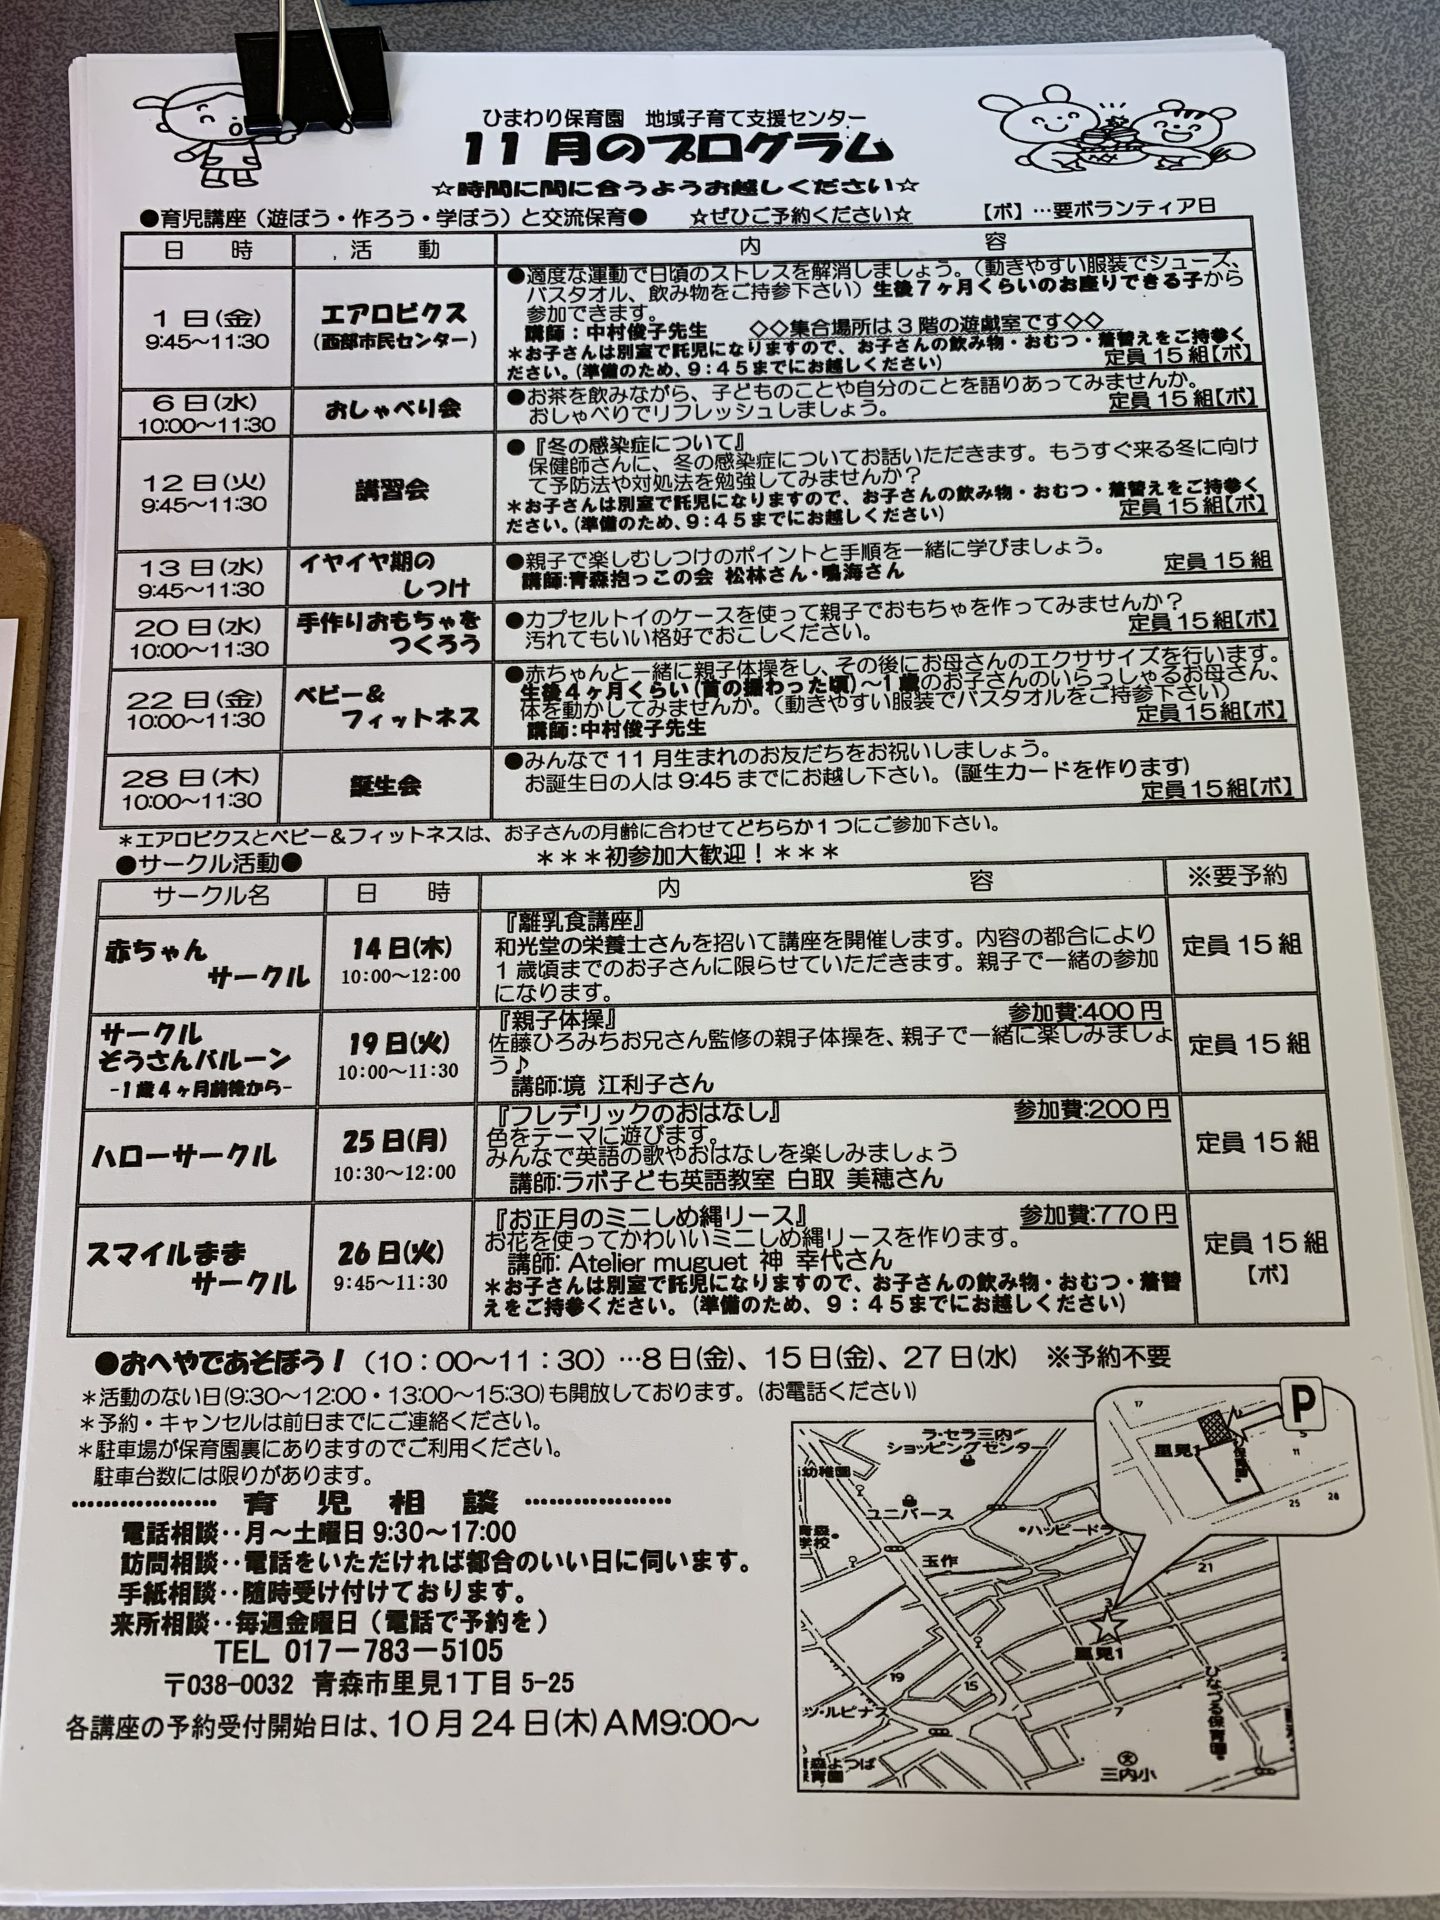 ひまわり保育園　地域子育て支援センター
11月のプログラム
☆時間に間に合うようお越しください☆
●育児講座（遊ぼう・作ろう・学ぼう）と交流保育●　☆ぜひご予約ください☆　【ボ】…要ボランティア日
日　時　活　動　内　容
1日(金)
9:45～11:30
エアロビクス
（西部市民センター）
●適度な運動で日頃のストレスを解消しましょう。（動きやすい服装でシューズ、
バスタオル、飲み物をご持参下さい）生後7ヶ月くらいのお座りできる子から
参加できます。
講師：中村俊子先生　◇◇集合場所は3階の遊戯室です◇◇
＊お子さんは別室で託児になりますので、お子さんの飲み物・おむつ・着替えをご持参く
ださい。(準備のため、9：45までにお越しください）　定員15組【ボ】
6日(水)
10:00～11:30
おしゃべり会
●お茶を飲みながら、子どものことや自分のことを語りあってみませんか。
おしゃべりでリフレッシュしましょう。　定員15組【ボ】
12日(火)
9:45～11:30
講習会
●『冬の感染症について』
保健師さんに、冬の感染症についてお話いただきます。もうすぐ来る冬に向け
て予防法や対処法を勉強してみませんか？
＊お子さんは別室で託児になりますので、お子さんの飲み物・おむつ・着替えをご持参く
ださい。(準備のため、9：45までにお越しください）　定員15組【ボ】
13日(水)
9:45～11:30
イヤイヤ期の
しつけ
●親子で楽しむしつけのポイントと手順を一緒に学びましょう。
講師:青森抱っこの会 松林さん・鳴海さん　定員15組
20日(水)
10:00～11:30
手作りおもちゃを
つくろう
●カプセルトイのケースを使って親子でおもちゃを作ってみませんか？
汚れてもいい格好でおこしください。　定員15組【ボ】
22日(金)
10:00～11:30
ベビー＆
フィットネス
●赤ちゃんと一緒に親子体操をし、その後にお母さんのエクササイズを行います。
生後4ヶ月くらい（首の据わった頃）～1歳のお子さんのいらっしゃるお母さん、
体を動かしてみませんか。（動きやすい服装でバスタオルをご持参下さい）
講師:中村俊子先生　定員15組【ボ】
28日(木)
10:00～11:30
誕生会
●みんなで11月生まれのお友だちをお祝いしましょう。
お誕生日の人は9:45までにお越し下さい。（誕生カードを作ります）
定員15組【ボ】
＊エアロビクスとベビー＆フィットネスは、お子さんの月齢に合わせてどちらか1つにご参加下さい。
●サークル活動●　＊＊＊初参加大歓迎！＊＊＊
サークル名　日　時　内　容　※要予約
赤ちゃん
サークル
14日(木)
10:00～12:00
『離乳食講座』
和光堂の栄養士さんを招いて講座を開催します。内容の都合により
1歳頃までのお子さんに限らせていただきます。親子で一緒の参加
になります。
定員15組
サークル
ぞうさんバルーン
-1歳4ヶ月前後から-
19日(火)
10:00～11:30
『親子体操』　参加費:400円
佐藤ひろみちお兄さん監修の親子体操を、親子で一緒に楽しみましょ
う♪
講師:境 江利子さん
定員15組
ハローサークル
25日(月)
10:30～12:00
『フレデリックのおはなし』　参加費:200円
色をテーマに遊びます。
みんなで英語の歌やおはなしを楽しみましょう
講師:ラボ子ども英語教室 白取 美穂さん
定員15組
スマイルまま
サークル
26日(火)
9:45～11:30
『お正月のミニしめ縄リース』　参加費:770円
お花を使ってかわいいミニしめ縄リースを作ります。
講師: Atelier muguet 神 幸代さん
＊お子さんは別室で託児になりますので、お子さんの飲み物・おむつ・着替
えをご持参ください。（準備のため、9：45までにお越しください）
定員15組
【ボ】
●おへやであそぼう！（10：00～11：30）…8日(金)、15日(金)、27日(水)　※予約不要
＊活動のない日(9:30～12:00・13:00～15:30)も開放しております。(お電話ください)
＊予約・キャンセルは前日までにご連絡ください。
＊駐車場が保育園裏にありますのでご利用ください。
駐車台数には限りがあります。
………………育　児　相　談………………
電話相談‥月～土曜日 9:30～17:00
訪問相談‥電話をいただければ都合のいい日に伺います。
手紙相談‥随時受け付けております。
来所相談‥毎週金曜日（電話で予約を）
TEL 017－783－5105
〒038-0032 青森市里見1丁目5-25
各講座の予約受付開始日は、10月24日(木)AM9:00～
P
17
里見1
保育園
5
11
25
28
ラ・セラ三内
ショッピングセンター
幼稚園
ユニバース
ハッピードラ
玉作
21
3
里見1
19
15
7
ひなづる保育園
ツ・ルピナス
森よつば
保育園
三内小